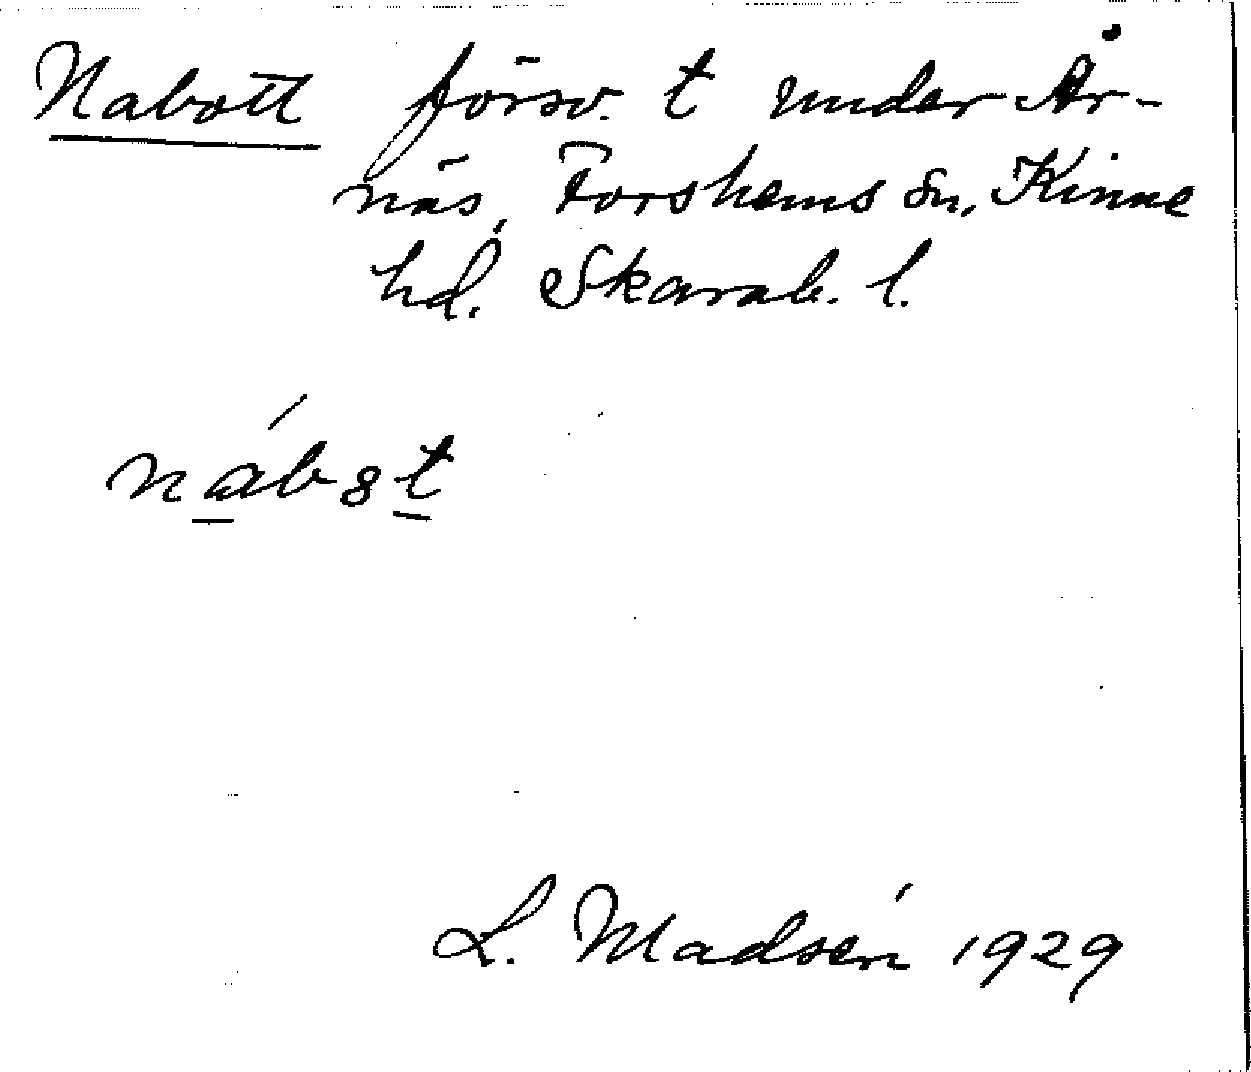 Nabott försv. t under År-
näs, Forshems sn, Kinne
hd. Skarab. l.
nábȣt
L. Madsén 1929